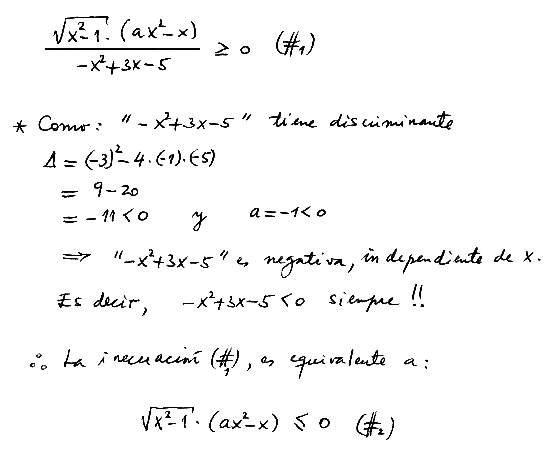 \frac{\sqrt{x^2-1} \cdot (ax^2-x)}{-x^2+3x-5} ≥ 0 (#₁)
* Como: "-x²+3x-5" tiene discriminante
Δ = (-3)²-4·(-1)·(-5)
= 9-20
= -11<0 y a=-1<0
⇒ "-x²+3x-5" es negativa, independiente de x.
Es decir, -x²+3x-5<0 siempre!!
∴ La inecuación (#₁), es equivalente a:
\sqrt{x^2-1} · (ax²-x) ≤ 0 (#₂)